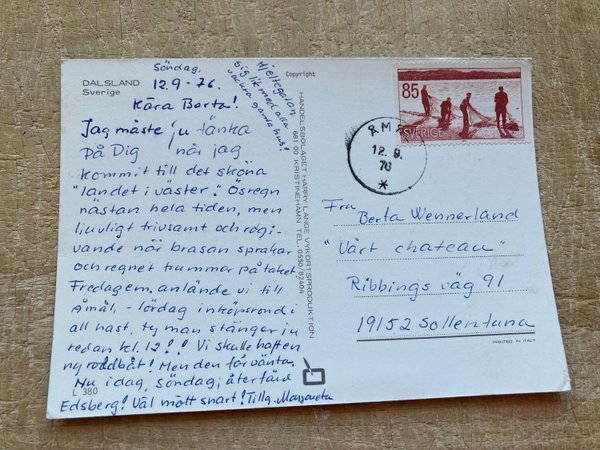 DALSLAND
Sverige
Söndag.
12.9-76.
Kära Berta!
Jag måste ju tänka
på Dig når jag
kommit till det sköna
"landet i väster". Ösregn
nästan hela tiden, men
ljuvligt trivsamt och rogi-
vande når brasan sprakar
och regnet trummar på taket.
Fredagem. anlände vi till
Åmål, - lördag inköpsrond i
all hast, ty man stänger ju
redan kl. 12!! Vi skulle haft en
ny roddbåt! Men den får vänta.
Nu idag, söndag, återfärd
Edsberg! Väl mött snart! Tillg. Margareta
L 380
Hjeltegatan
sig lik med alla
vackra gamla hus!
Copyright
HANDELSBOLAGET HARRY LANGE VYKORTSPRODUKTION
681 00 KRISTINEHAMN TEL. 0550/82404
85
SVERIGE
ÅMÅL
12.9.
76
Fru
Berta Wennerland
"Vårt chateau"
Ribbings väg 91
19152 Sollentuna
PRINTED IN ITALY